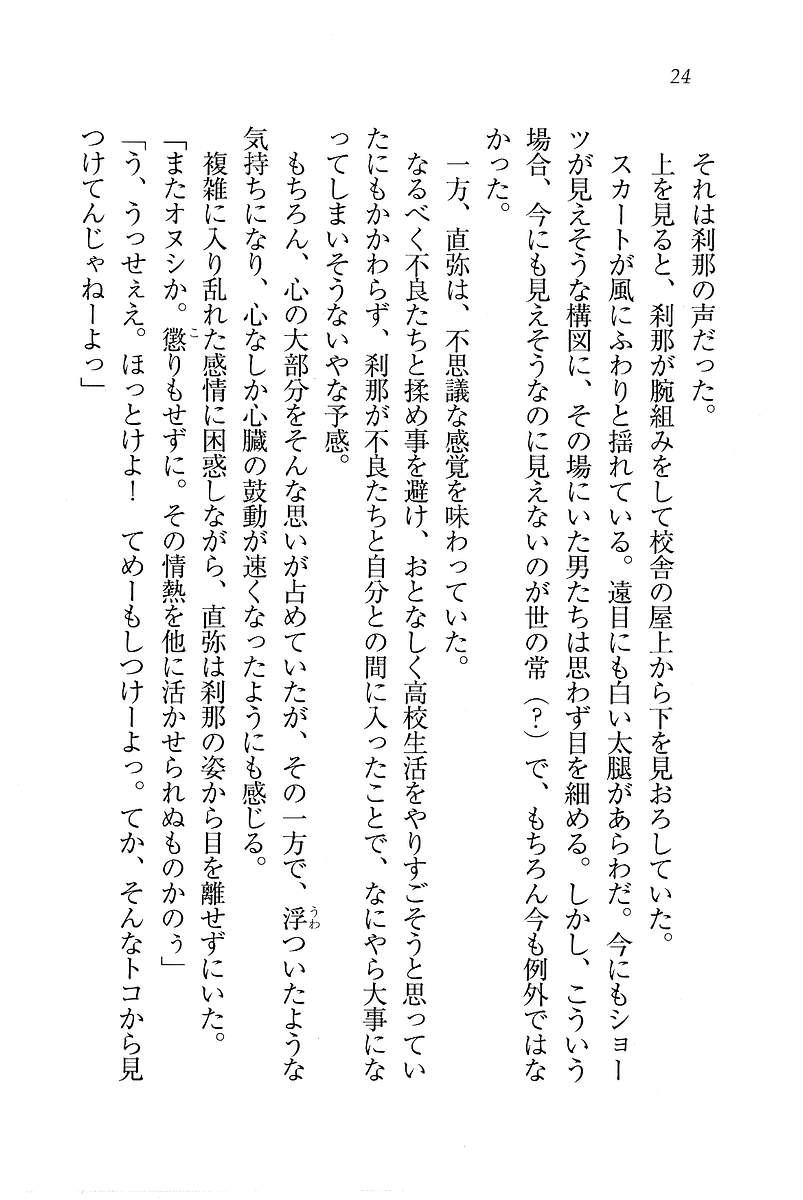 24
それは刹那の声だった。
上を見ると、刹那が腕組みをして校舎の屋上から下を見おろしていた。
スカートが風にふわりと揺れている。遠目にも白い太腿があらわだ。今にもショー
ツが見えそうな構図に、その場にいた男たちは思わず目を細める。しかし、こういう
場合、今にも見えそうなのに見えないのが世の常（？）で、もちろん今も例外ではな
かった。
一方、直弥は、不思議な感覚を味わっていた。
なるべく不良たちと揉め事を避け、おとなしく高校生活をやりすごそうと思ってい
たにもかかわらず、刹那が不良たちと自分との間に入ったことで、なにやら大事にな
ってしまいそうないやな予感。
もちろん、心の大部分をそんな思いが占めていたが、その一方で、浮ついたような
気持ちになり、心なしか心臓の鼓動が速くなったようにも感じる。
複雑に入り乱れた感情に困惑しながら、直弥は刹那の姿から目を離せずにいた。
「またオヌシか。懲りもせずに。その情熱を他に活かせられぬものかのぅ」
「う、うっせぇえ。ほっとけよ！　てめーもしつけーよっ。てか、そんなトコから見
つけてんじゃねーよっ」